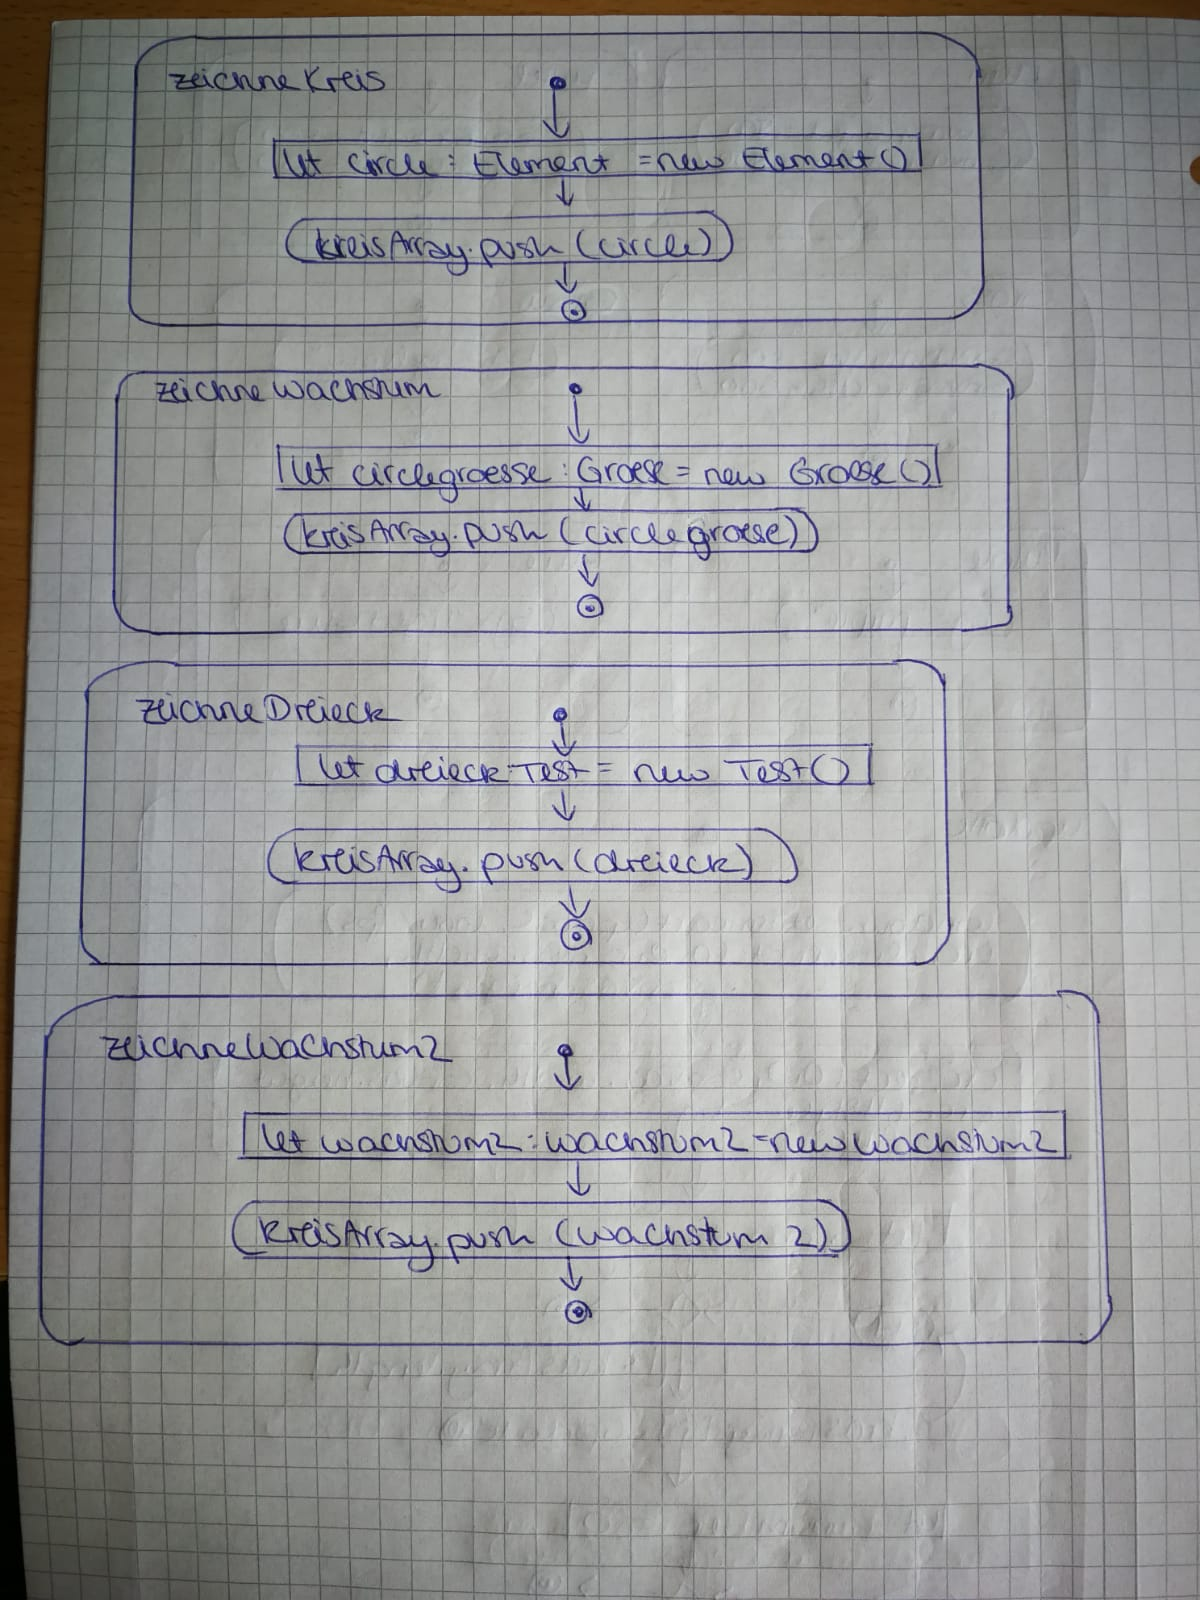 zeichneKreis
let circle : Element = new Element()
kreisArray.push(circle)
zeichneWachstum
let circlegroesse : Groese = new Groese()
kreisArray.push(circlegroese)
zeichneDreieck
let dreieck:Test = new Test()
kreisArray.push(dreieck)
zeichneWachstum2
let wachstum2:wachstum2=new wachstum2
kreisArray.push(wachstum 2)